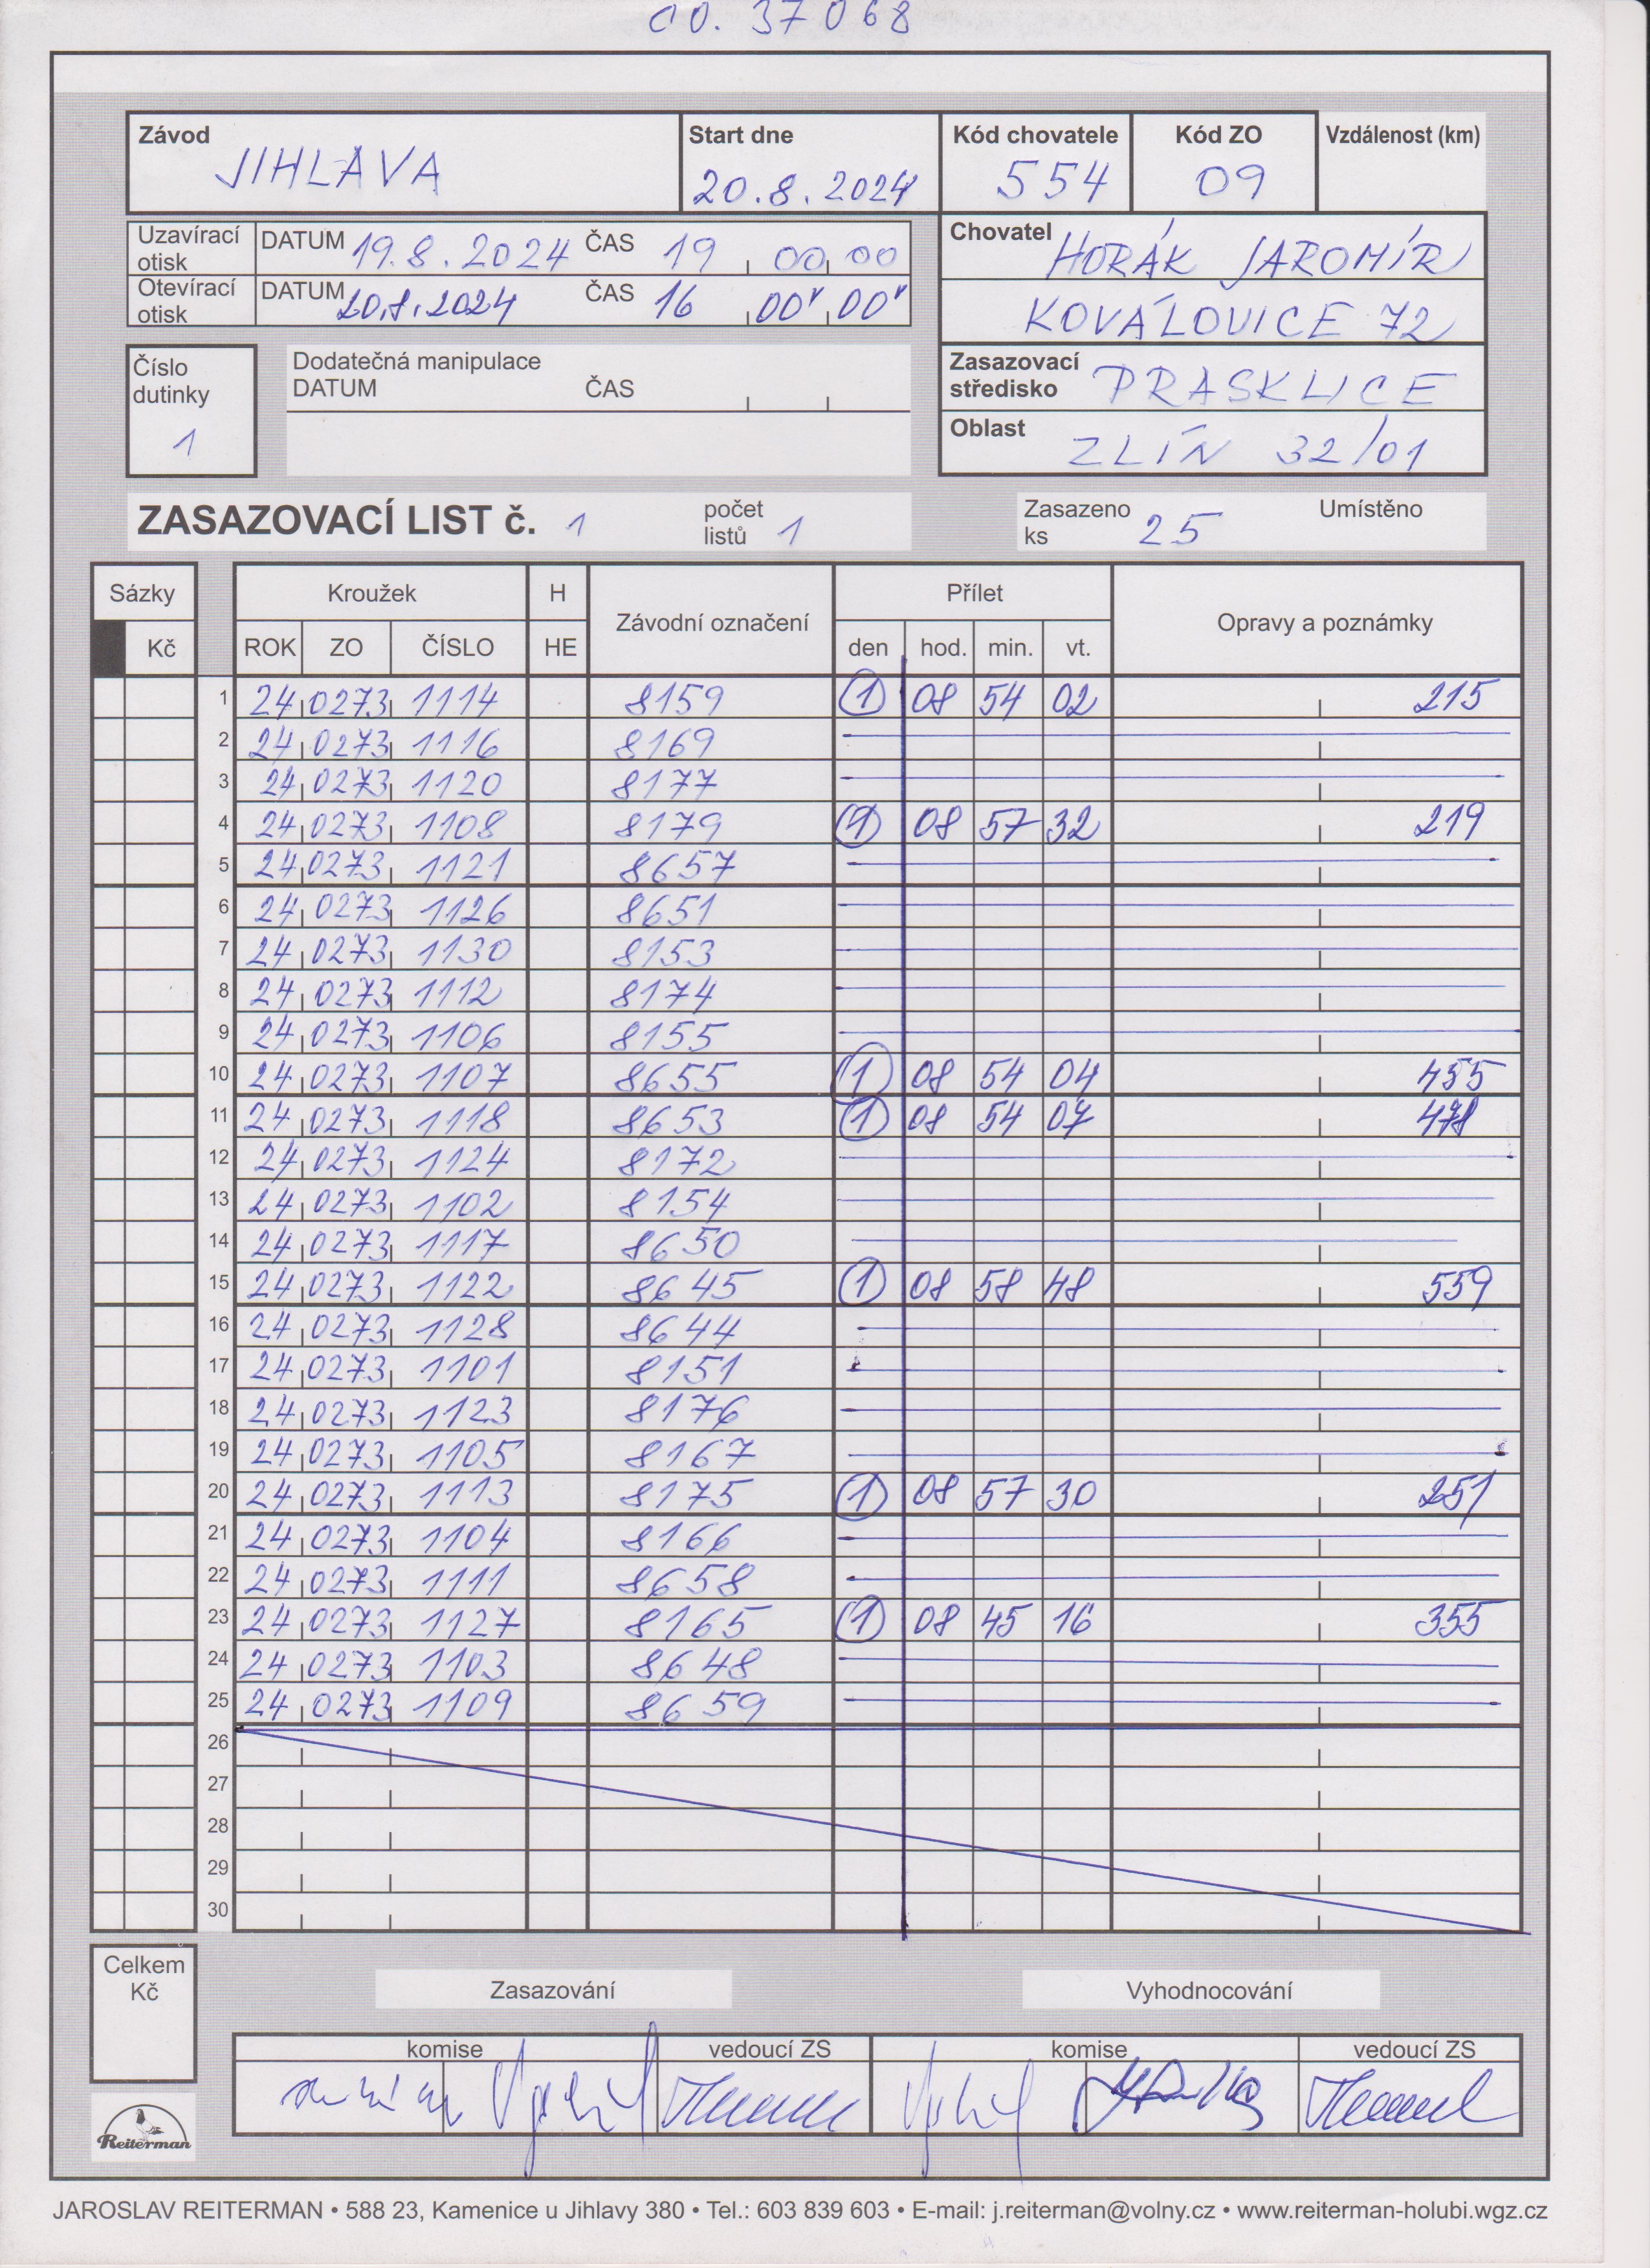 ČO. 37068
Závod Start dne Kód chovatele Kód ZO Vzdálenost (km)
JIHLAVA 20.8.2024 554 09
Uzavírací otisk DATUM 19.8.2024 ČAS 19 00 00
Otevírací otisk DATUM 20.8.2024 ČAS 16 00 00
Chovatel HORÁK JAROMÍR
KOVÁLOVICE 72
Číslo dutinky 1
Dodatečná manipulace
DATUM ČAS
Zasazovací středisko PRASKLICE
Oblast ZLÍN 32/01
ZASAZOVACÍ LIST č. 1 počet listů 1 Zasazeno ks 25 Umístěno
Sázky Kroužek H Závodní označení Přílet Opravy a poznámky
Kč ROK ZO ČÍSLO HE den hod. min. vt.
1 24 0273 1114 8159 1 08 54 02 215
2 24 0273 1116 8169
3 24 0273 1120 8177
4 24 0273 1108 8179 1 08 57 32 219
5 24 0273 1121 8657
6 24 0273 1126 8651
7 24 0273 1130 8153
8 24 0273 1112 8174
9 24 0273 1106 8155
10 24 0273 1107 8655 1 08 54 04 455
11 24 0273 1118 8653 1 08 54 07 478
12 24 0273 1124 8172
13 24 0273 1102 8154
14 24 0273 1117 8650
15 24 0273 1122 8645 1 08 58 48 559
16 24 0273 1128 8644
17 24 0273 1101 8151
18 24 0273 1123 8176
19 24 0273 1105 8167
20 24 0273 1113 8175 1 08 57 30 251
21 24 0273 1104 8166
22 24 0273 1111 8658
23 24 0273 1127 8165 1 08 45 16 355
24 24 0273 1103 8648
25 24 0273 1109 8659
26
27
28
29
30
Celkem Kč
Zasazování Vyhodnocování
komise vedoucí ZS komise vedoucí ZS
Reiterman
JAROSLAV REITERMAN • 588 23, Kamenice u Jihlavy 380 • Tel.: 603 839 603 • E-mail: j.reiterman@volny.cz • www.reiterman-holubi.wgz.cz